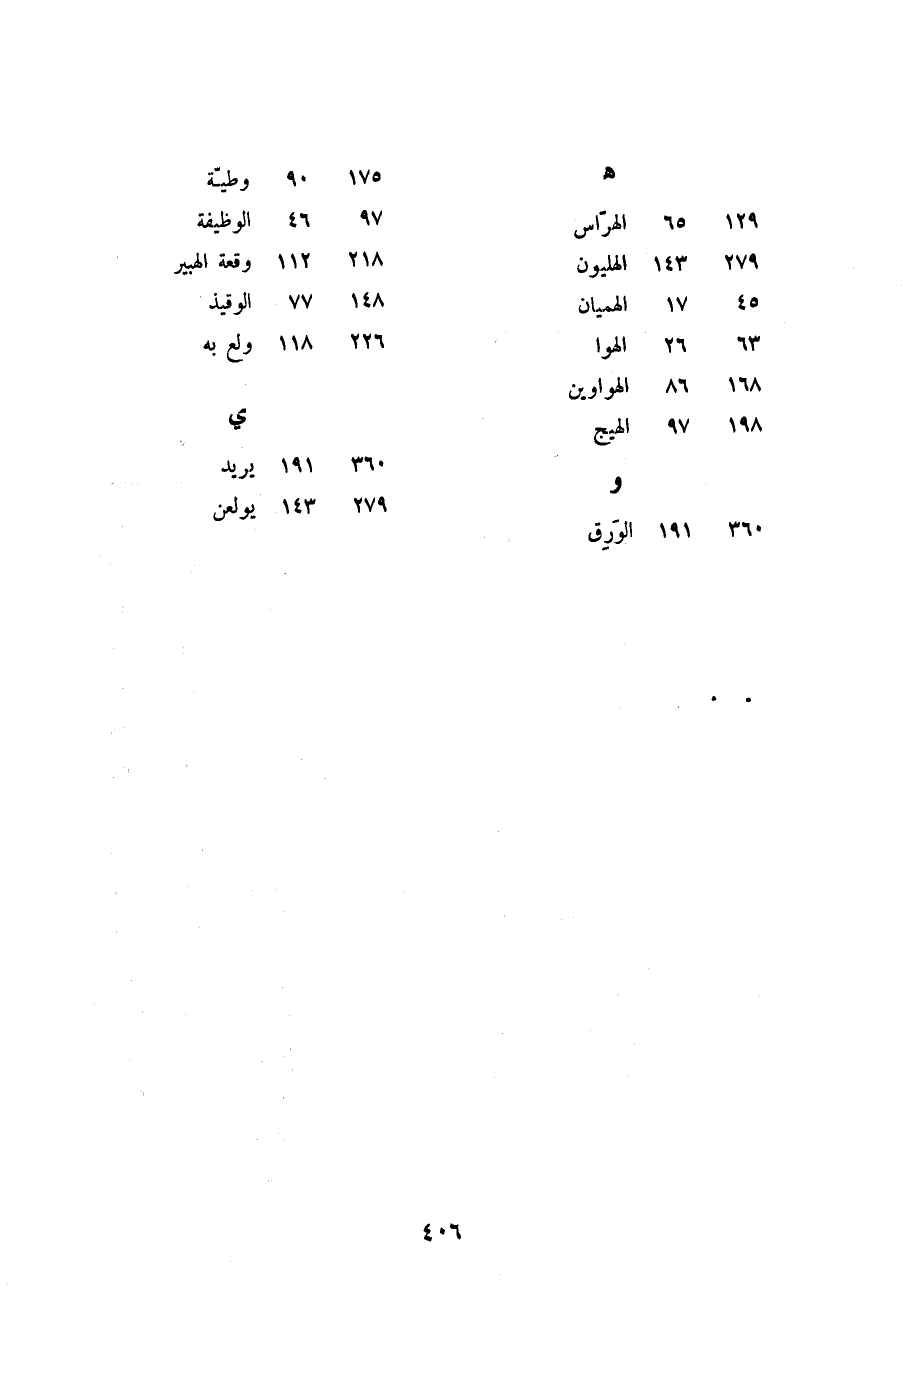 ه
١٢٩ ٦٥ الهرّاس
٢٧٩ ١٤٣ الهليون
٤٥ ١٧ الهميان
٦٣ ٢٦ الهوا
١٦٨ ٨٦ الهواوين
١٩٨ ٩٧ الهيج
و
٣٦٠ ١٩١ الوَرِق
١٧٥ ٩٠ وطيّة
٩٧ ٤٦ الوظيفة
٢١٨ ١١٢ وقعة الهبير
١٤٨ ٧٧ الوقيذ
٢٢٦ ١١٨ ولع به
ي
٣٦٠ ١٩١ يريد
٢٧٩ ١٤٣ يولعن
٤٠٦